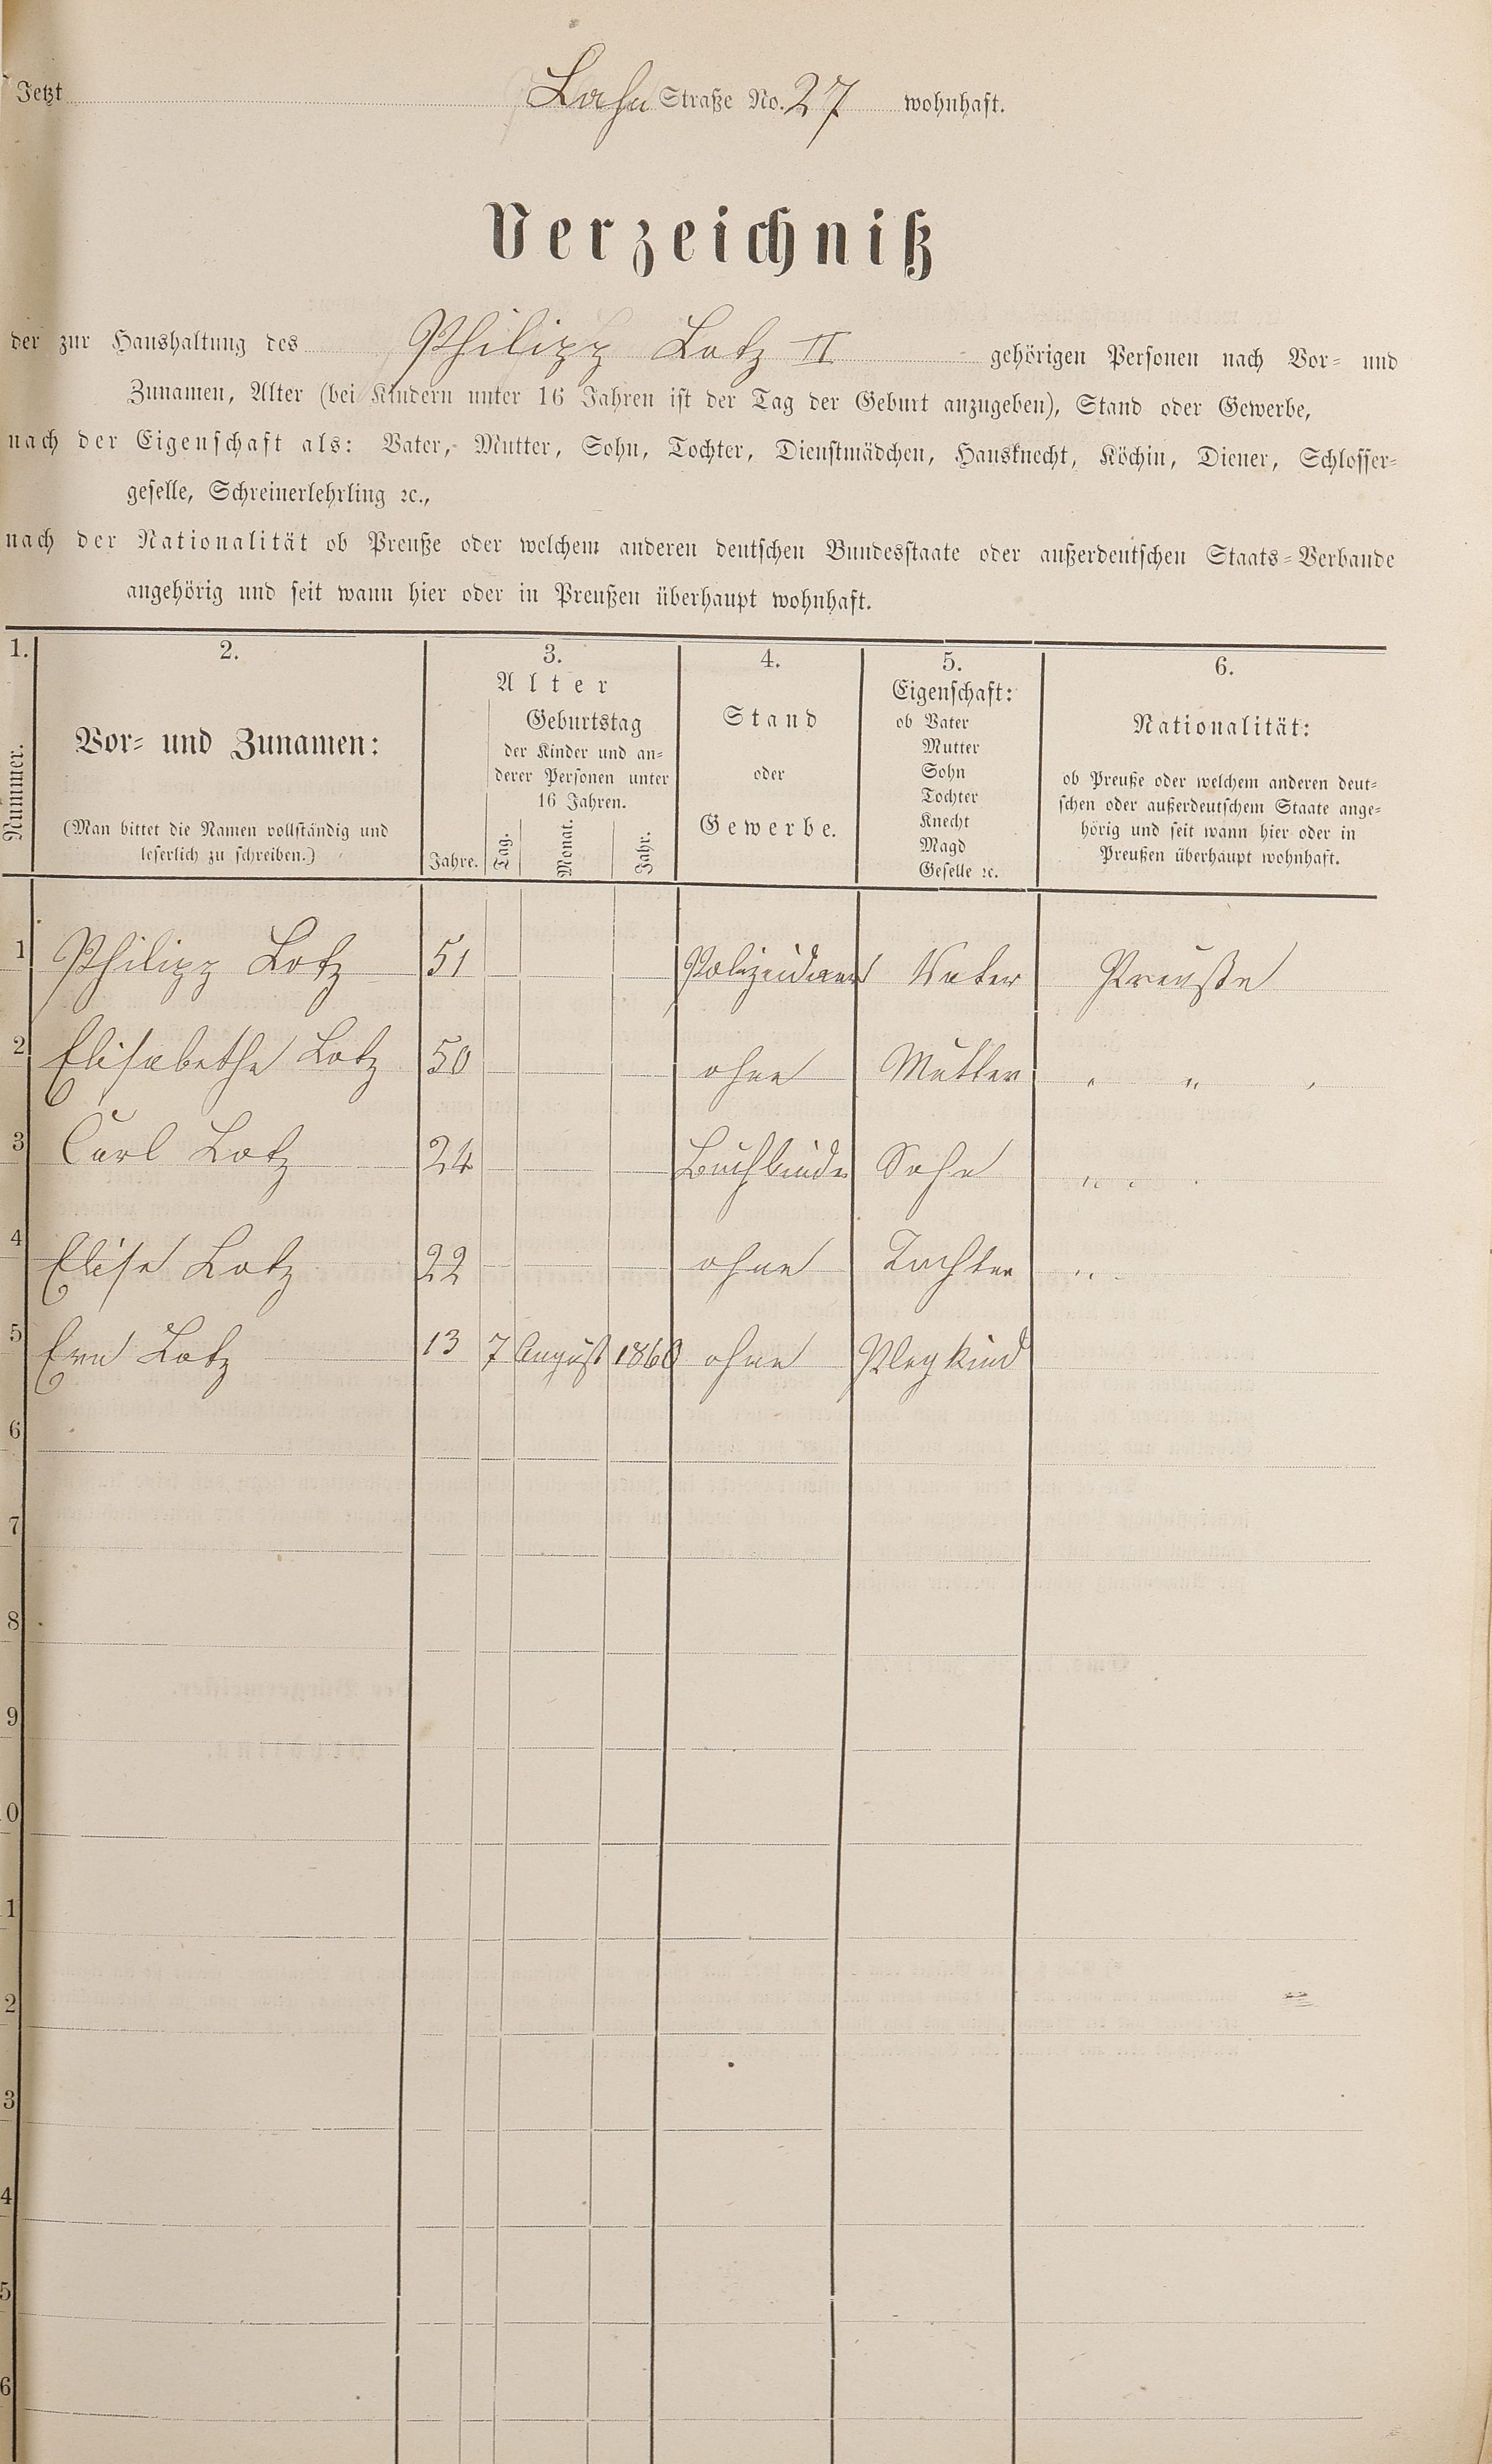 Jetzt Lahn Straße No. 27 wohnhaft.
Verzeichniß
der zur Haushaltung des Philipp Lotz II gehörigen Personen nach Vor- und
Zunamen, Alter (bei Kindern unter 16 Jahren ist der Tag der Geburt anzugeben), Stand oder Gewerbe,
nach der Eigenschaft als: Vater, Mutter, Sohn, Tochter, Dienstmädchen, Hausknecht, Köchin, Diener, Schlosser-
geselle, Schreinerlehrling ꝛc.,
nach der Nationalität ob Preuße oder welchem anderen deutschen Bundesstaate oder außerdeutschen Staats-Verbande
angehörig und seit wann hier oder in Preußen überhaupt wohnhaft.
1.
Nummer.
2.
Vor- und Zunamen:
(Man bittet die Namen vollständig und
leserlich zu schreiben.)
3.
Alter
Jahre.
Geburtstag
der Kinder und an-
derer Personen unter
16 Jahren.
Tag. Monat. Jahr.
4.
Stand
oder
Gewerbe.
5.
Eigenschaft:
ob Vater
Mutter
Sohn
Tochter
Knecht
Magd
Geselle ꝛc.
6.
Nationalität:
ob Preuße oder welchem anderen deut-
schen oder außerdeutschem Staate ange-
hörig und seit wann hier oder in
Preußen überhaupt wohnhaft.
1 Philipp Lotz 51 Polizeidiener Vater Preuße
2 Elisabethe Lotz 50 ohne Mutter " " "
3 Carl Lotz 24 Buchbinder Sohn " " "
4 Elise Lotz 22 ohne Tochter "
5 Lotz 13 7 August 1860 ohne Plegkind
6
7
8
9
0
1
2
3
4
5
6